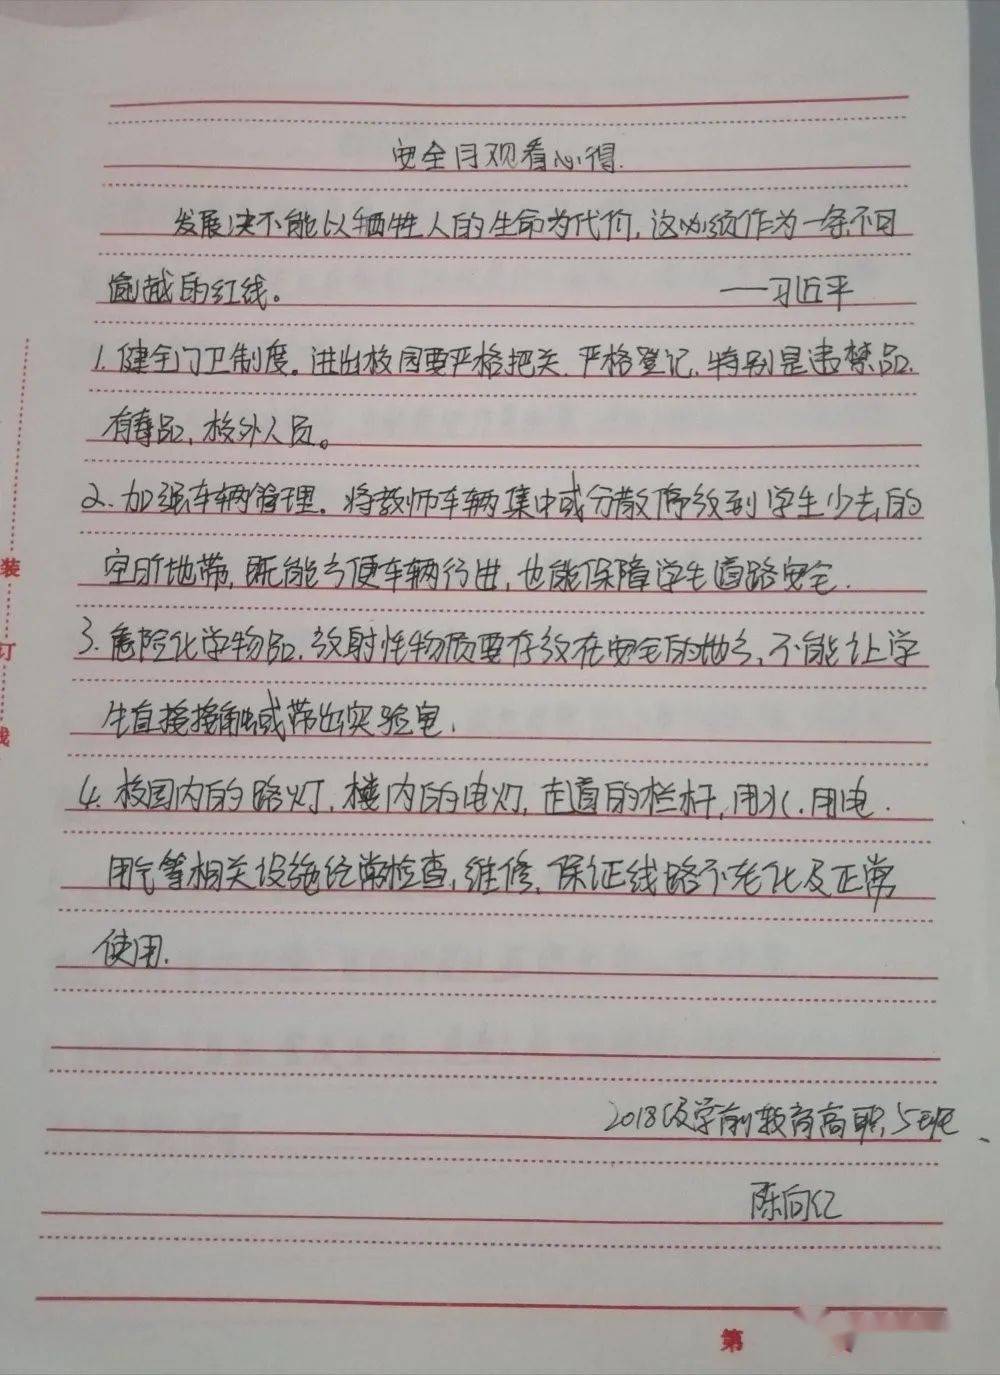 安全月观看心得.
发展决不能以牺牲人的生命为代价,这必须作为一条不可
逾越的红线。 ——习近平
1.健全门卫制度。进出校园要严格把关.严格登记.特别是违禁品.
有毒品,校外人员。
2.加强车辆管理。将教师车辆集中或分散停放到学生少去的
空阶地带,既能方便车辆行进,也能保障学生道路安全.
3.危险化学物品.放射性物质要存放在安全的地方,不能让学
生直接接触或带出实验室.
4.校园内的路灯,楼内的电灯,走道的栏杆,用水.用电.
用气等相关设施经常检查,维修,保证线路不老化及正常
使用.
2018级学前教育高职5班
陈向亿
装
订
线
第